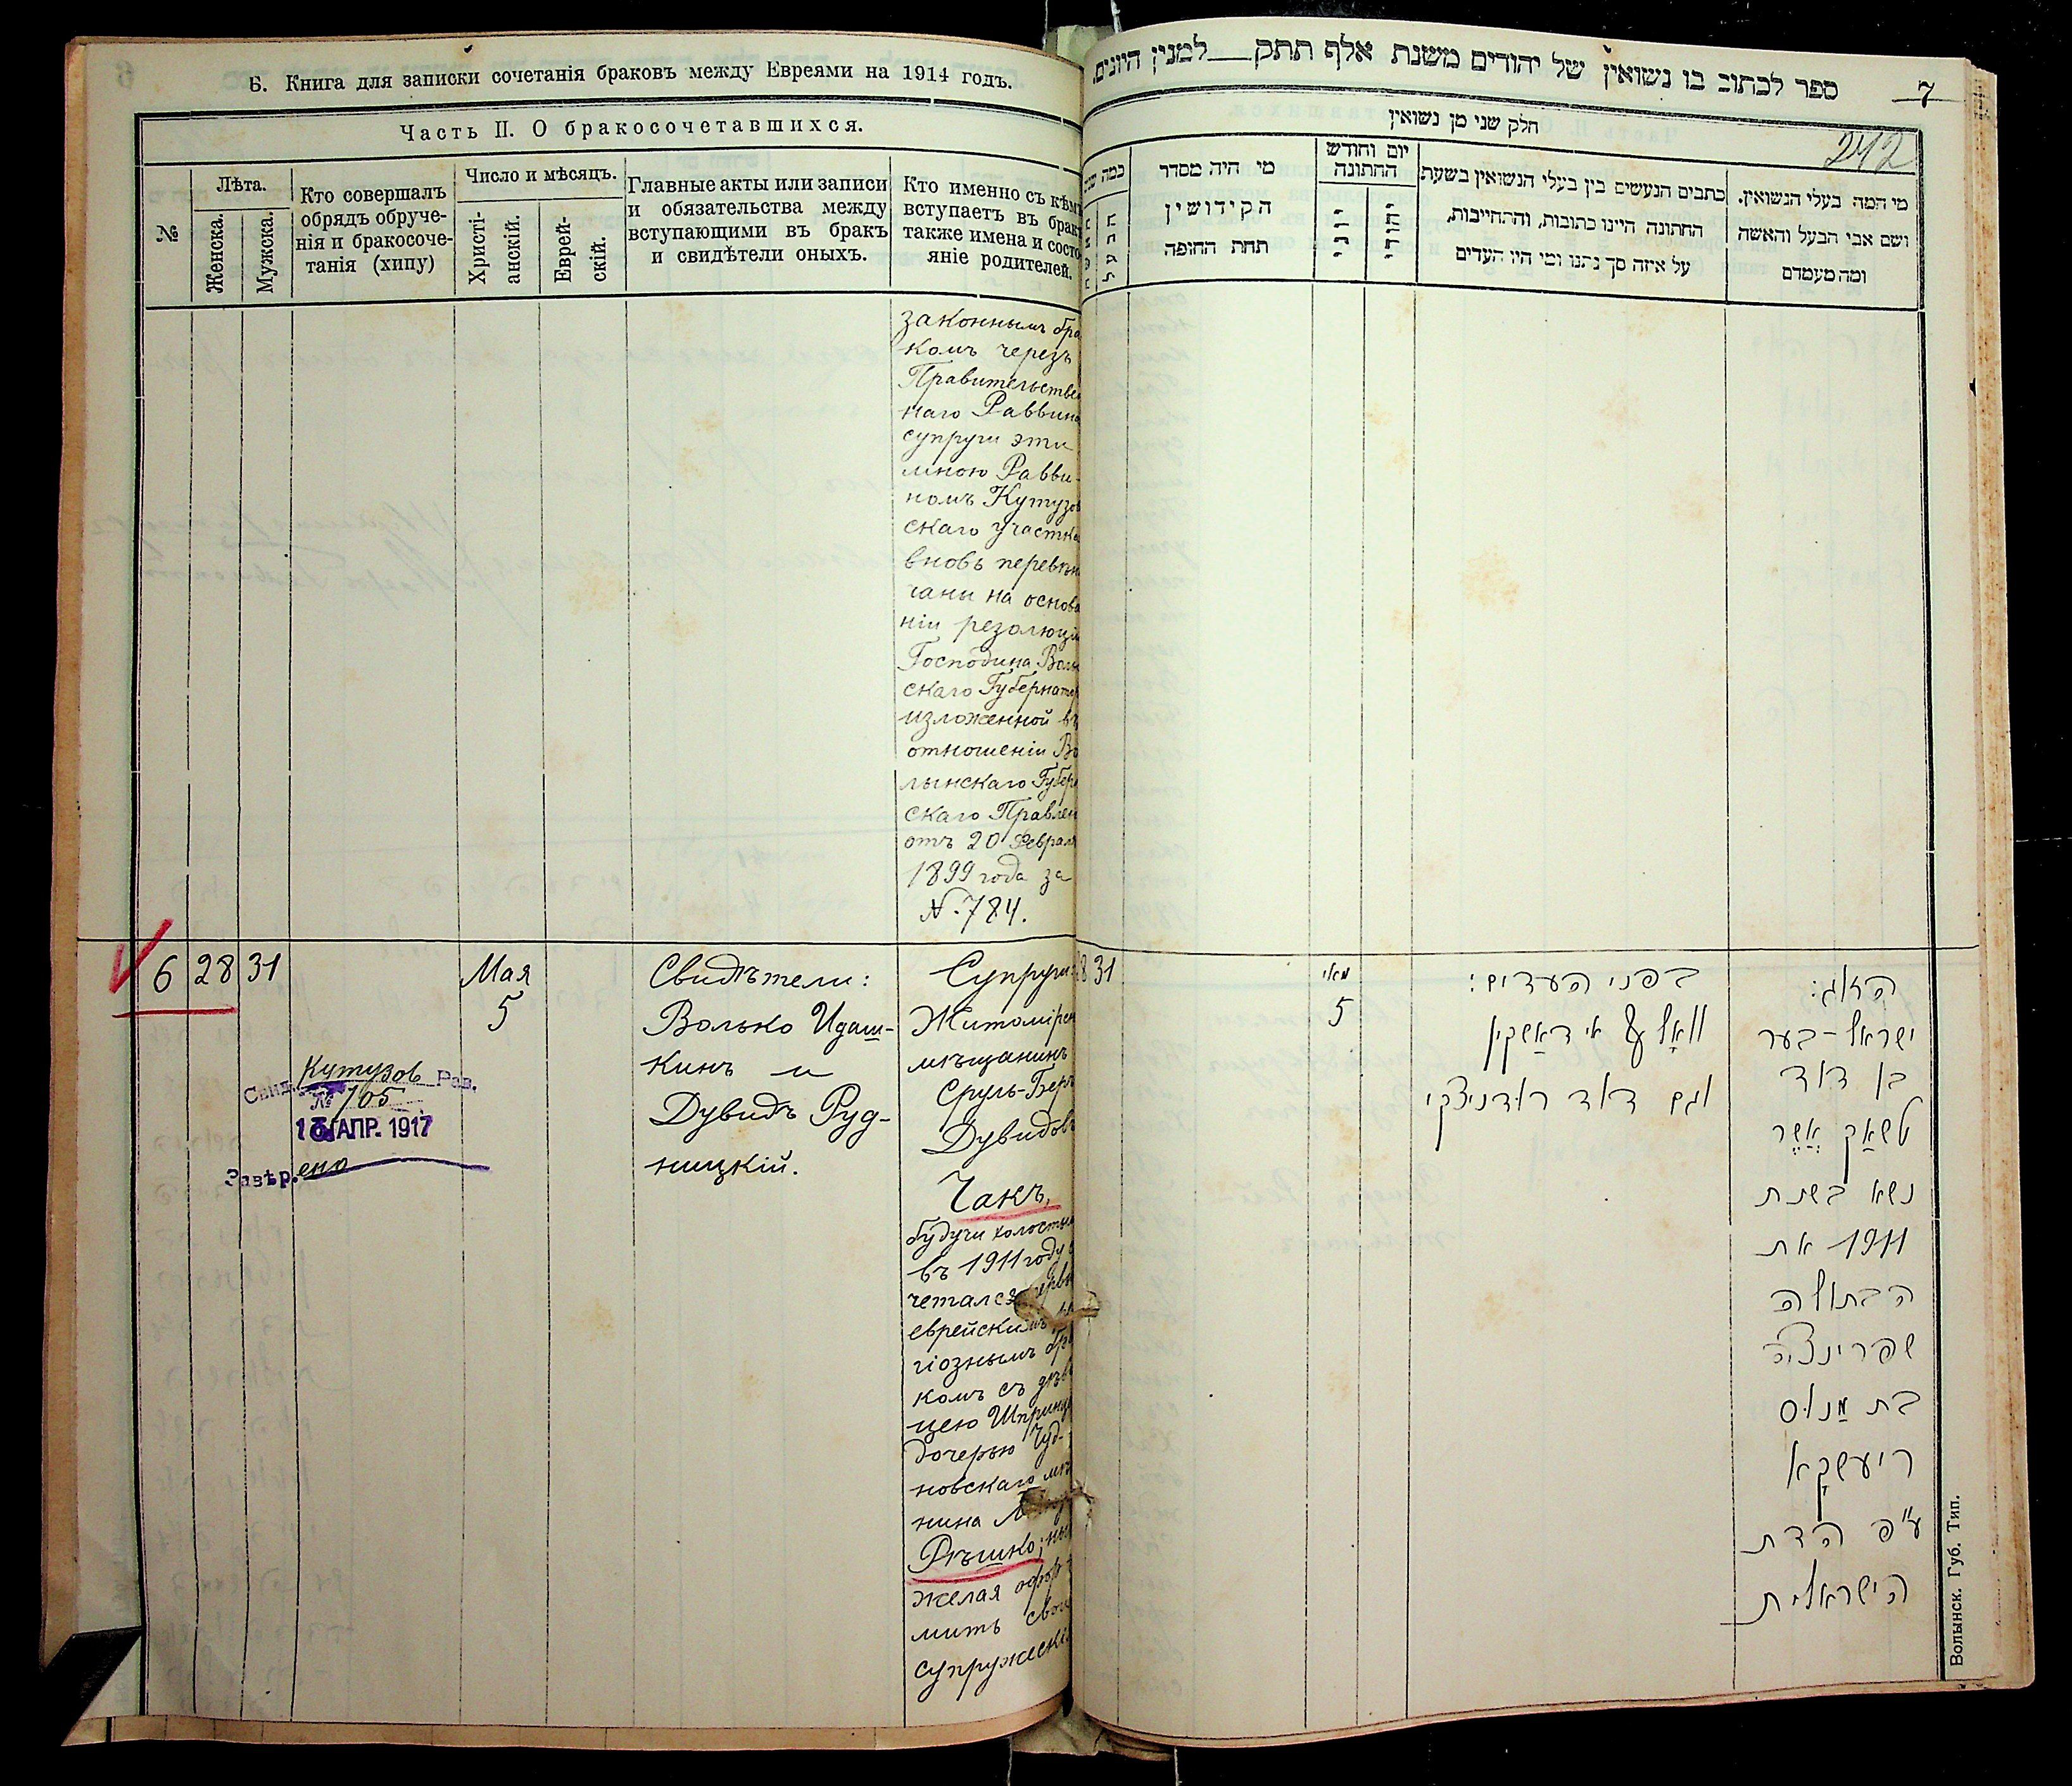 Б. Книга для записки сочетанія браковъ между Евреями на 1914 годъ.
Часть II. О бракосочетавшихся.
№
Лѣта.
Женска.
Мужска.
Кто совершалъ
обрядъ обруче-
нія и бракосоче-
танія (хипу)
Число и мѣсяцъ.
Христі-
анскій.
Еврей-
скій.
Главные акты или записи
и обязательства между
вступающими въ бракъ
и свидѣтели оныхъ.
Кто именно съ кѣмъ
вступаетъ въ бракъ
также имена и состо-
яніе родителей.
законнымъ бра
комъ черезъ
Правительствен
наго Раввина
супруги эти
мною Равви-
номъ Кутузов
скаго участка
вновь перевѣн
чаны на основа
ніи резолюціи
Господина Волын
скаго Губернатор
изложенной въ
отношеніи Во
лынскаго Губерн
скаго Правлен
отъ 20 Февраля
1899 года за
№. 784.
6 28 31
Мая
5
Свидѣтели:
Волько Идаш-
кинъ и
Дувидъ Руд-
ницкій.
Свид. Кутузов Рав.
№ 105
АПР. 1917
Завѣр.ено
Супруги:
Житомірск
мѣщанинъ
Сруль-Беръ
Дувидовъ
Чакъ,
будучи холостым
въ 1911 году
четался
еврейскимъ
гіознымъ бра
комъ съ дѣви
цею Шпринце
дочерью Чуд-
новскаго мѣ
нина
Рѣшко;
желая офор
мить свои
супружескі
ספר לכתוב בו נשואין של יהודים משנת אלף תתק למנין היונים.
7
242
חלק שני מן נשואין
מי המה בעלי הנשואין.
ושם אבי הבעל והאשה
ומה מעמדם
כתבים הנעשים בין בעלי הנשואין בשעת
החתונה היינו כתובות, והתחייבות,
על איזה סך נתנו ומי היו העדים
יום וחודש
החתונה
מי היה מסדר
הקידושין
תחת החופה
כמה שנ
31
מאי
5
בפני העדים:
וואָלף אידאַשקין
וגם דוד רודניצקי
הזוג:
ישראל-בער
בן דוד
טשאַק אֲשֶר
נשא בשנת
1911 את
הבתולה
שפרינצה
בת מַנוס
ריעשקָא
ע"פ הדת
הישראלית
Волынск. Губ. Тип.